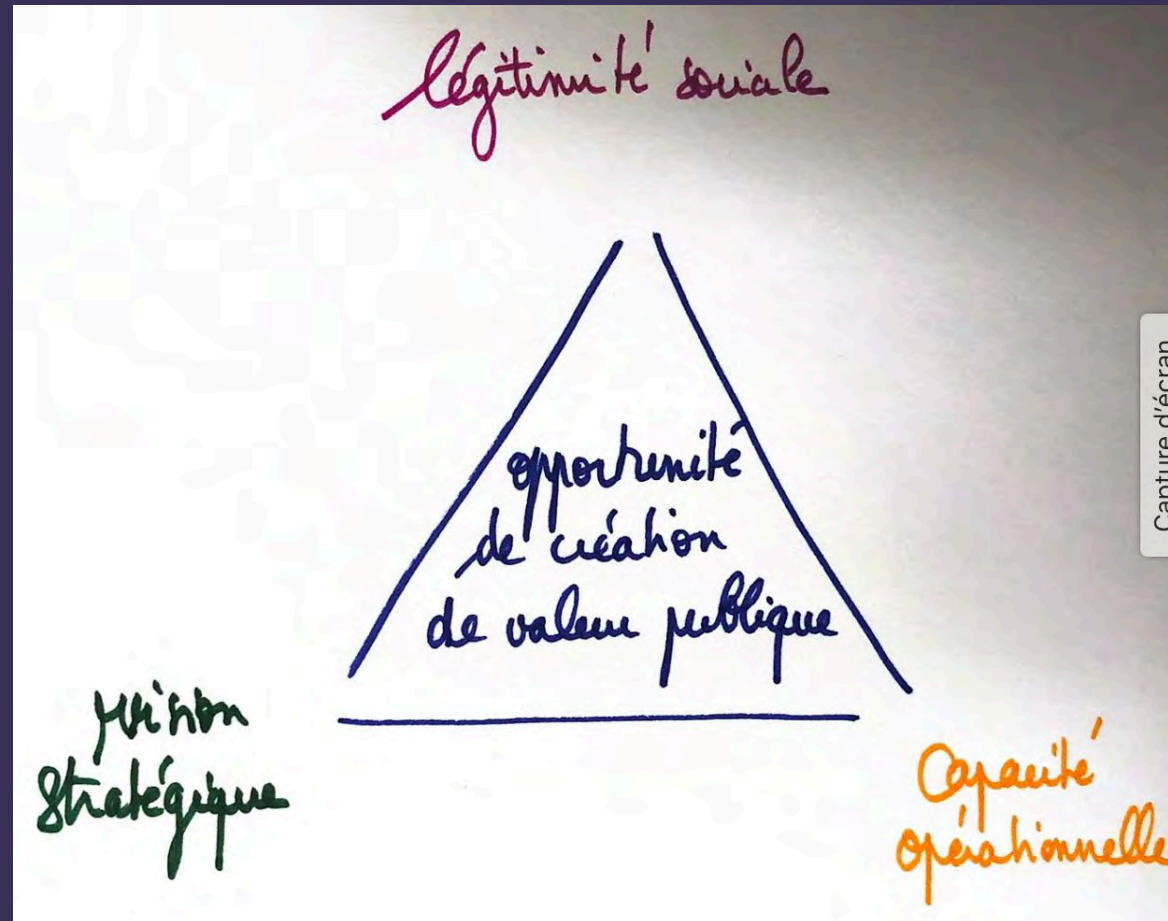 légitimité sociale
opportunité
de création
de valeur publique
vision
stratégique
Capacité
opérationnelle
Capture d'écran